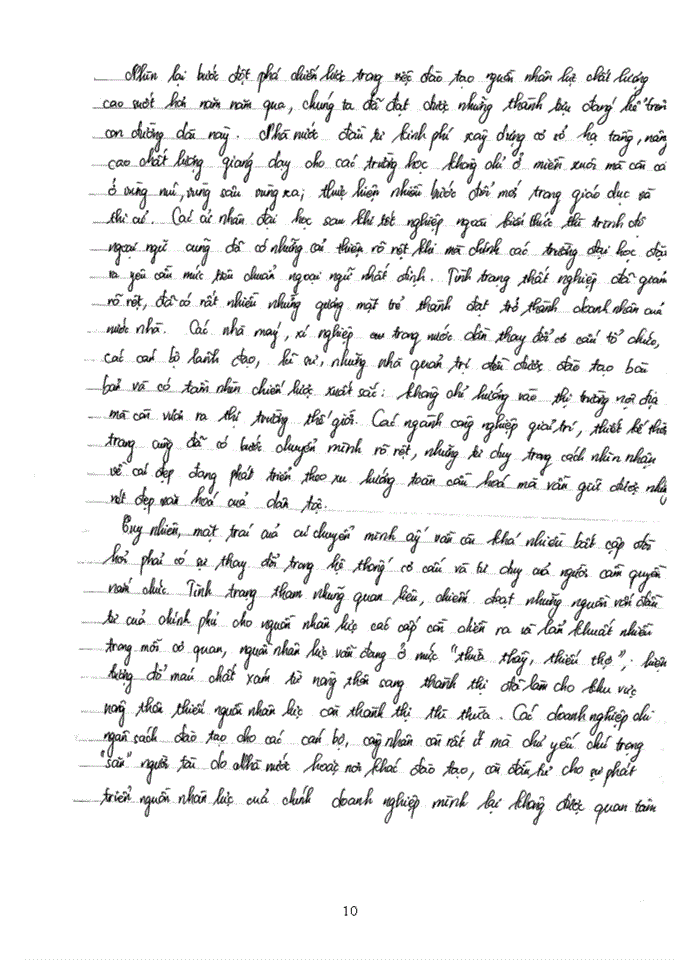 Nhìn lại bước đột phá chiến lược trong việc đào tạo nguồn nhân lực chất lượng
cao suốt hơn năm năm qua, chúng ta đã đạt được những thành tựu đáng kể trên
con đường dài này. Nhà nước đầu tư kinh phí xây dựng cơ sở hạ tầng, nâng
cao chất lượng giảng dạy cho các trường học không chỉ ở miền xuôi mà còn cả
ở vùng núi, vùng sâu vùng xa; thực hiện nhiều bước đổi mới trong giáo dục và
thi cử. Các cử nhân đại học sau khi tốt nghiệp ngoài kiến thức thì trình độ
ngoại ngữ cũng đã có những cải thiện rõ rệt khi mà chính các trường đại học đã
ra yêu cầu mức tiêu chuẩn ngoại ngữ nhất định. Tình trạng thất nghiệp đã giảm
rõ rệt, đã có rất nhiều những gương mặt trẻ thành đạt trở thành doanh nhân của
nước nhà. Các nhà máy, xí nghiệp trong nước dần thay đổi cơ cấu tổ chức,
các cán bộ lãnh đạo, kĩ sư, những nhà quản trị đều được đào tạo bài
bản và có tầm nhìn chiến lược xuất sắc: không chỉ hướng vào thị trường nội địa
mà còn vươn ra thị trường thế giới. Các ngành công nghiệp giải trí, thiết kế thời
trang cũng đã có bước chuyển mình rõ rệt, những tư duy trong cách nhìn nhận
về cái đẹp đang phát triển theo xu hướng toàn cầu hoá mà vẫn giữ được những
nét đẹp văn hoá của dân tộc.
Tuy nhiên, mặt trái của sự chuyển mình ấy vẫn còn khá nhiều bất cập đòi
hỏi phải có sự thay đổi trong hệ thống cơ cấu và tư duy của người cầm quyền
nắm chức. Tình trạng tham nhũng quan liêu, chiếm đoạt những nguồn vốn đầu
tư của chính phủ cho nguồn nhân lực cao cấp còn diễn ra và lẩn khuất nhiều
trong mỗi cơ quan, nguồn nhân lực vẫn đang ở mức "thừa thầy, thiếu thợ"; hiện
tượng đổ máu chất xám từ nông thôn sang thành thị đã làm cho khu vực
nông thôn thiếu nguồn nhân lực còn thành thị thì thừa. Các doanh nghiệp chi
ngân sách đào tạo cho các cán bộ, công nhân còn rất ít mà chủ yếu chú trọng
"săn" người tài do Nhà nước hoặc nơi khác đào tạo, còn đầu tư cho sự phát
triển nguồn nhân lực của chính doanh nghiệp mình lại không được quan tâm
10